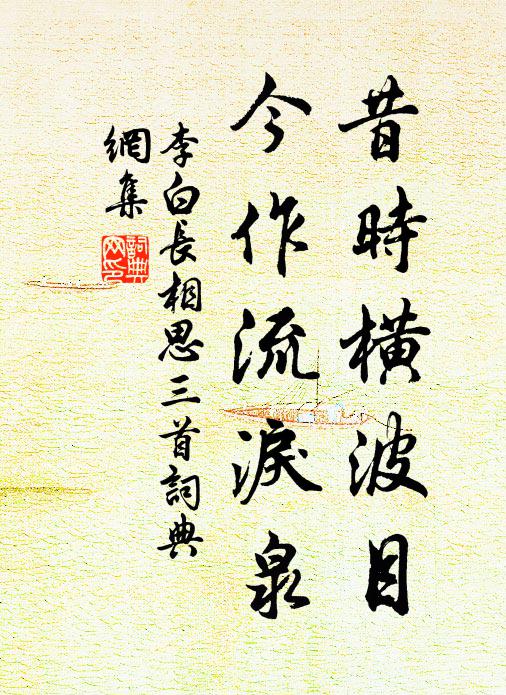 昔時橫波目
今作流淚泉
李白長相思三首詞典
網集
詞典
网印